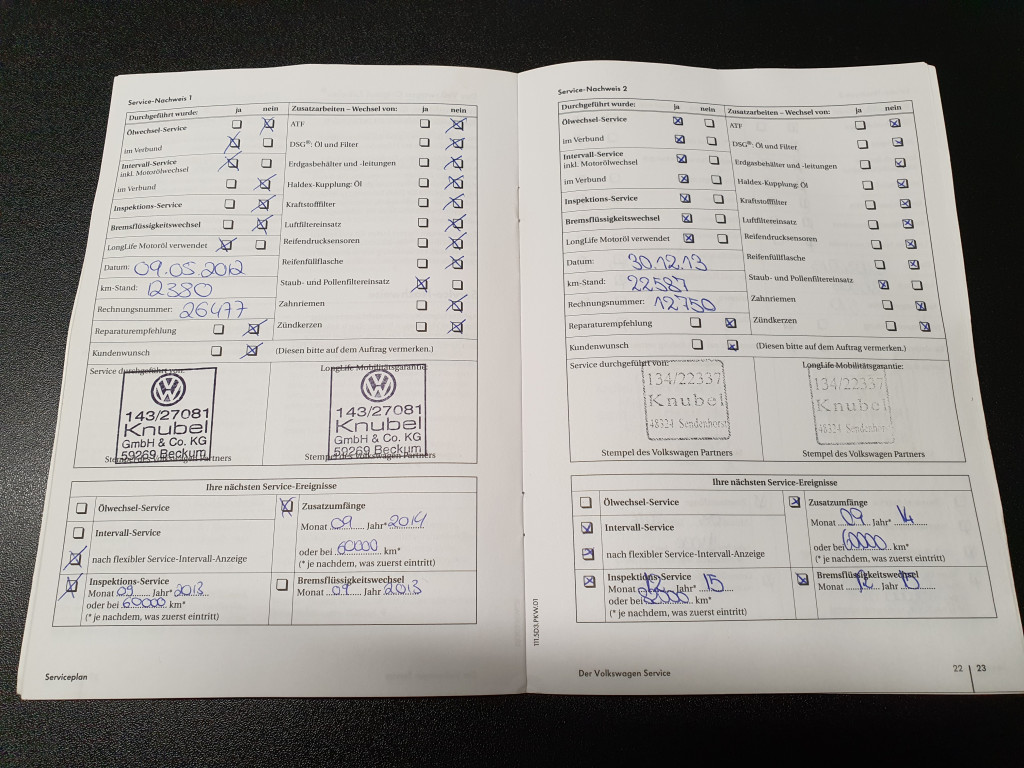 Service-Nachweis 1
Durchgeführt wurde: ja nein Zusatzarbeiten – Wechsel von: ja nein
Ölwechsel-Service ATF
im Verbund DSG®: Öl und Filter
Intervall-Service Erdgasbehälter und -leitungen
inkl. Motorölwechsel
im Verbund Haldex-Kupplung: Öl
Inspektions-Service Kraftstofffilter
Bremsflüssigkeitswechsel Luftfiltereinsatz
LongLife Motoröl verwendet Reifendrucksensoren
Datum: 09.05.2012 Reifenfüllflasche
km-Stand: 12380 Staub- und Pollenfiltereinsatz
Rechnungsnummer: 26477 Zahnriemen
Reparaturempfehlung Zündkerzen
Kundenwunsch (Diesen bitte auf dem Auftrag vermerken.)
Service durchgeführt von: LongLife Mobilitätsgarantie:
143/27081 143/27081
Knubel Knubel
GmbH & Co. KG GmbH & Co. KG
59269 Beckum 59269 Beckum
Stempel des Volkswagen Partners Stempel des Volkswagen Partners
Ihre nächsten Service-Ereignisse
Ölwechsel-Service Zusatzumfänge
Intervall-Service Monat 09 Jahr* 2014
nach flexibler Service-Intervall-Anzeige oder bei 60000 km*
(* je nachdem, was zuerst eintritt)
Inspektions-Service Bremsflüssigkeitswechsel
Monat 09 Jahr* 2013 Monat 09 Jahr 2013
oder bei 60000 km*
(* je nachdem, was zuerst eintritt)
Serviceplan
Service-Nachweis 2
Durchgeführt wurde: ja nein Zusatzarbeiten – Wechsel von: ja nein
Ölwechsel-Service ATF
im Verbund DSG®: Öl und Filter
Intervall-Service Erdgasbehälter und -leitungen
inkl. Motorölwechsel
im Verbund Haldex-Kupplung: Öl
Inspektions-Service Kraftstofffilter
Bremsflüssigkeitswechsel Luftfiltereinsatz
LongLife Motoröl verwendet Reifendrucksensoren
Datum: 30.12.13 Reifenfüllflasche
km-Stand: 22587 Staub- und Pollenfiltereinsatz
Rechnungsnummer: 12750 Zahnriemen
Reparaturempfehlung Zündkerzen
Kundenwunsch (Diesen bitte auf dem Auftrag vermerken.)
Service durchgeführt von: LongLife Mobilitätsgarantie:
134/22337 134/22337
Knubel Knubel
48324 Sendenhorst 48324 Sendenhorst
Stempel des Volkswagen Partners Stempel des Volkswagen Partners
Ihre nächsten Service-Ereignisse
Ölwechsel-Service Zusatzumfänge
Intervall-Service Monat 09 Jahr* 14
nach flexibler Service-Intervall-Anzeige oder bei 60000 km*
(* je nachdem, was zuerst eintritt)
Inspektions-Service Bremsflüssigkeitswechsel
Monat 12 Jahr* 15 Monat 12 Jahr 15
oder bei km*
(* je nachdem, was zuerst eintritt)
111.5D3.PKW.01
Der Volkswagen Service 22 23